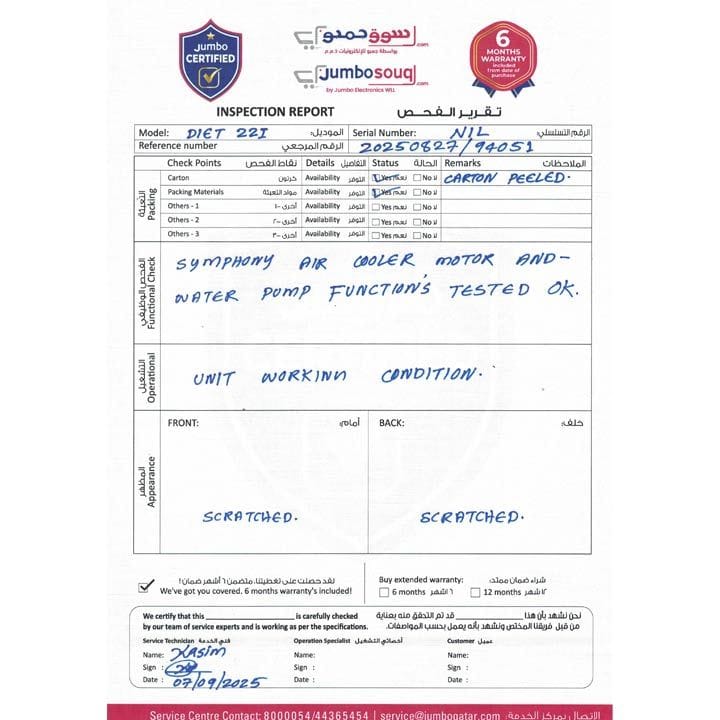 Jumbo
CERTIFIED
سوق جمبو.com
بواسطة جمبو للإلكترونيات ذ.م.م
jumbosouq.com
by Jumbo Electronics WLL
6
MONTHS
WARRANTY
included
from date of
purchase
INSPECTION REPORT تقرير الفحص
Model: DIET 22I الموديل: Serial Number: NIL الرقم التسلسلي:
Reference number الرقم المرجعي 20250827/94051
Check Points نقاط الفحص Details التفاصيل Status الحالة Remarks الملاحظات
التعبئة
Packing
Carton كرتون Availability التوفر Yes نعم No لا CARTON PEELED.
Packing Materials مواد التعبئة Availability التوفر Yes نعم No لا
Others - 1 أخرى -١ Availability التوفر Yes نعم No لا
Others - 2 أخرى -٢ Availability التوفر Yes نعم No لا
Others - 3 أخرى -٣ Availability التوفر Yes نعم No لا
الفحص الوظيفي
Functional Check
SYMPHONY AIR COOLER MOTOR AND-
WATER PUMP FUNCTION'S TESTED OK.
التشغيل
Operational
UNIT WORKING CONDITION.
المظهر
Appearance
FRONT: أمام: BACK: خلف:
SCRATCHED. SCRATCHED.
لقد حصلت على تغطيتنا، متضمن ٦ أشهر ضمان!
We've got you covered. 6 months warranty's included!
Buy extended warranty: شراء ضمان ممتد:
6 months ٦ اشهر 12 months ١٢ شهر
We certify that this ____________ is carefully checked
by our team of service experts and is working as per the specifications.
نحن نشهد بأن هذا ____________ قد تم التحقق منه بعناية
من قبل فريقنا المختص ونشهد بأنه يعمل بحسب المواصفات.
Service Technician فني الخدمة Operation Specialist أخصائي التشغيل Customer عميل
Name: KASIM Name: Name:
Sign : Sign : Sign :
Date : 07/09/2025 Date : Date :
Service Centre Contact: 8000054/44365454 | service@jumboqatar.com الاتصال بمركز الخدمة: